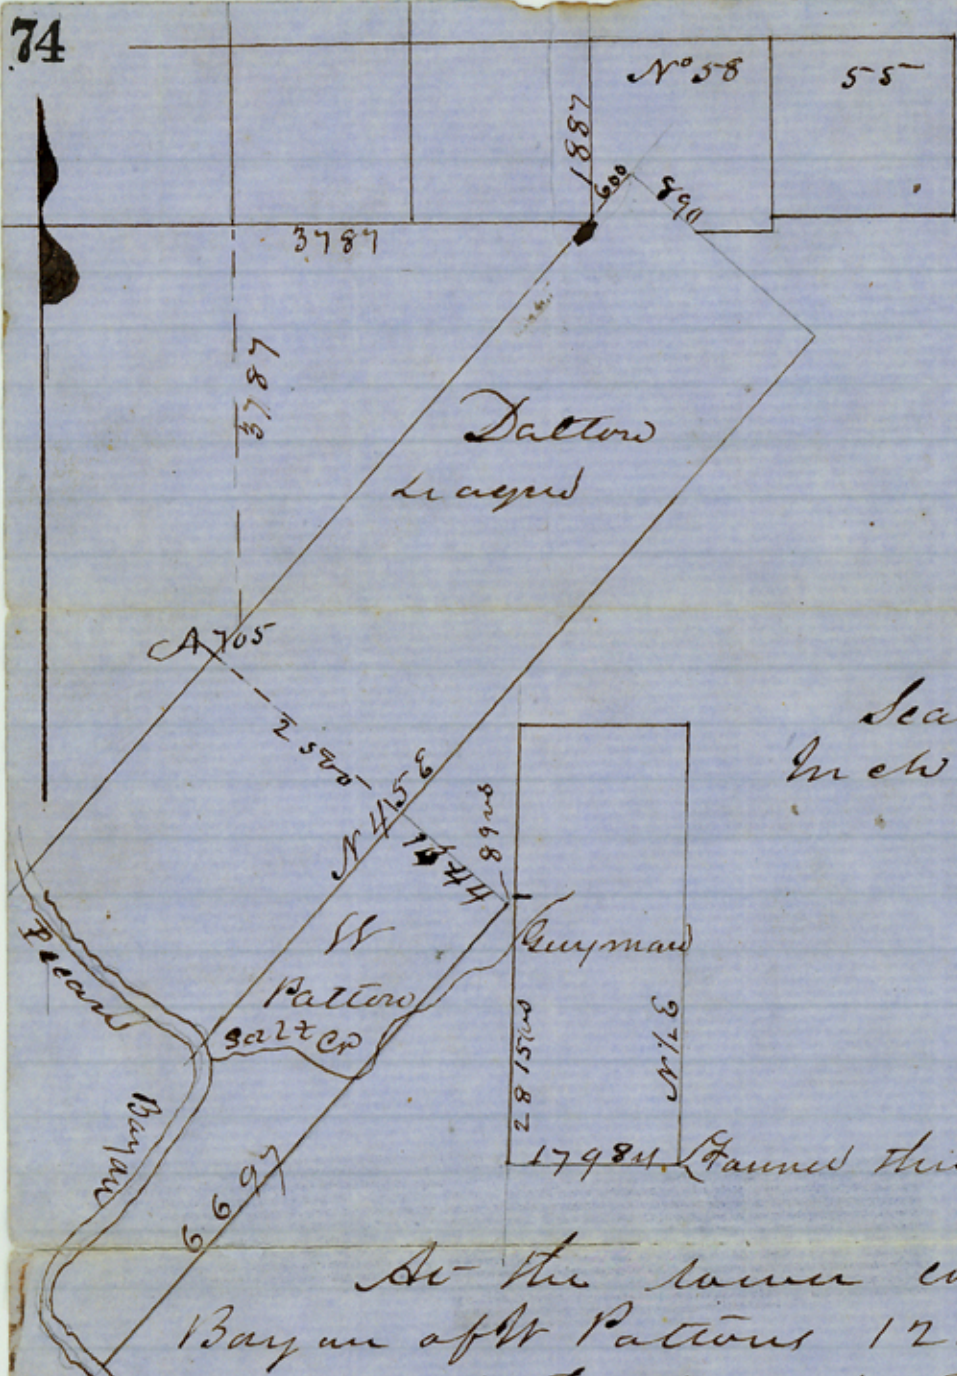 74
Nº 58
55
1887
600
890
3787
3787
Dalton
League
A 705
2500
N 45 E
Sca
Inch
89 vs
1644
W
Patton
Guyman
Salt Cr
Pecan
Bayou
2815 vs
N 1/2 E
1798
6697
At the lower co
Bayou of W Pattons 12